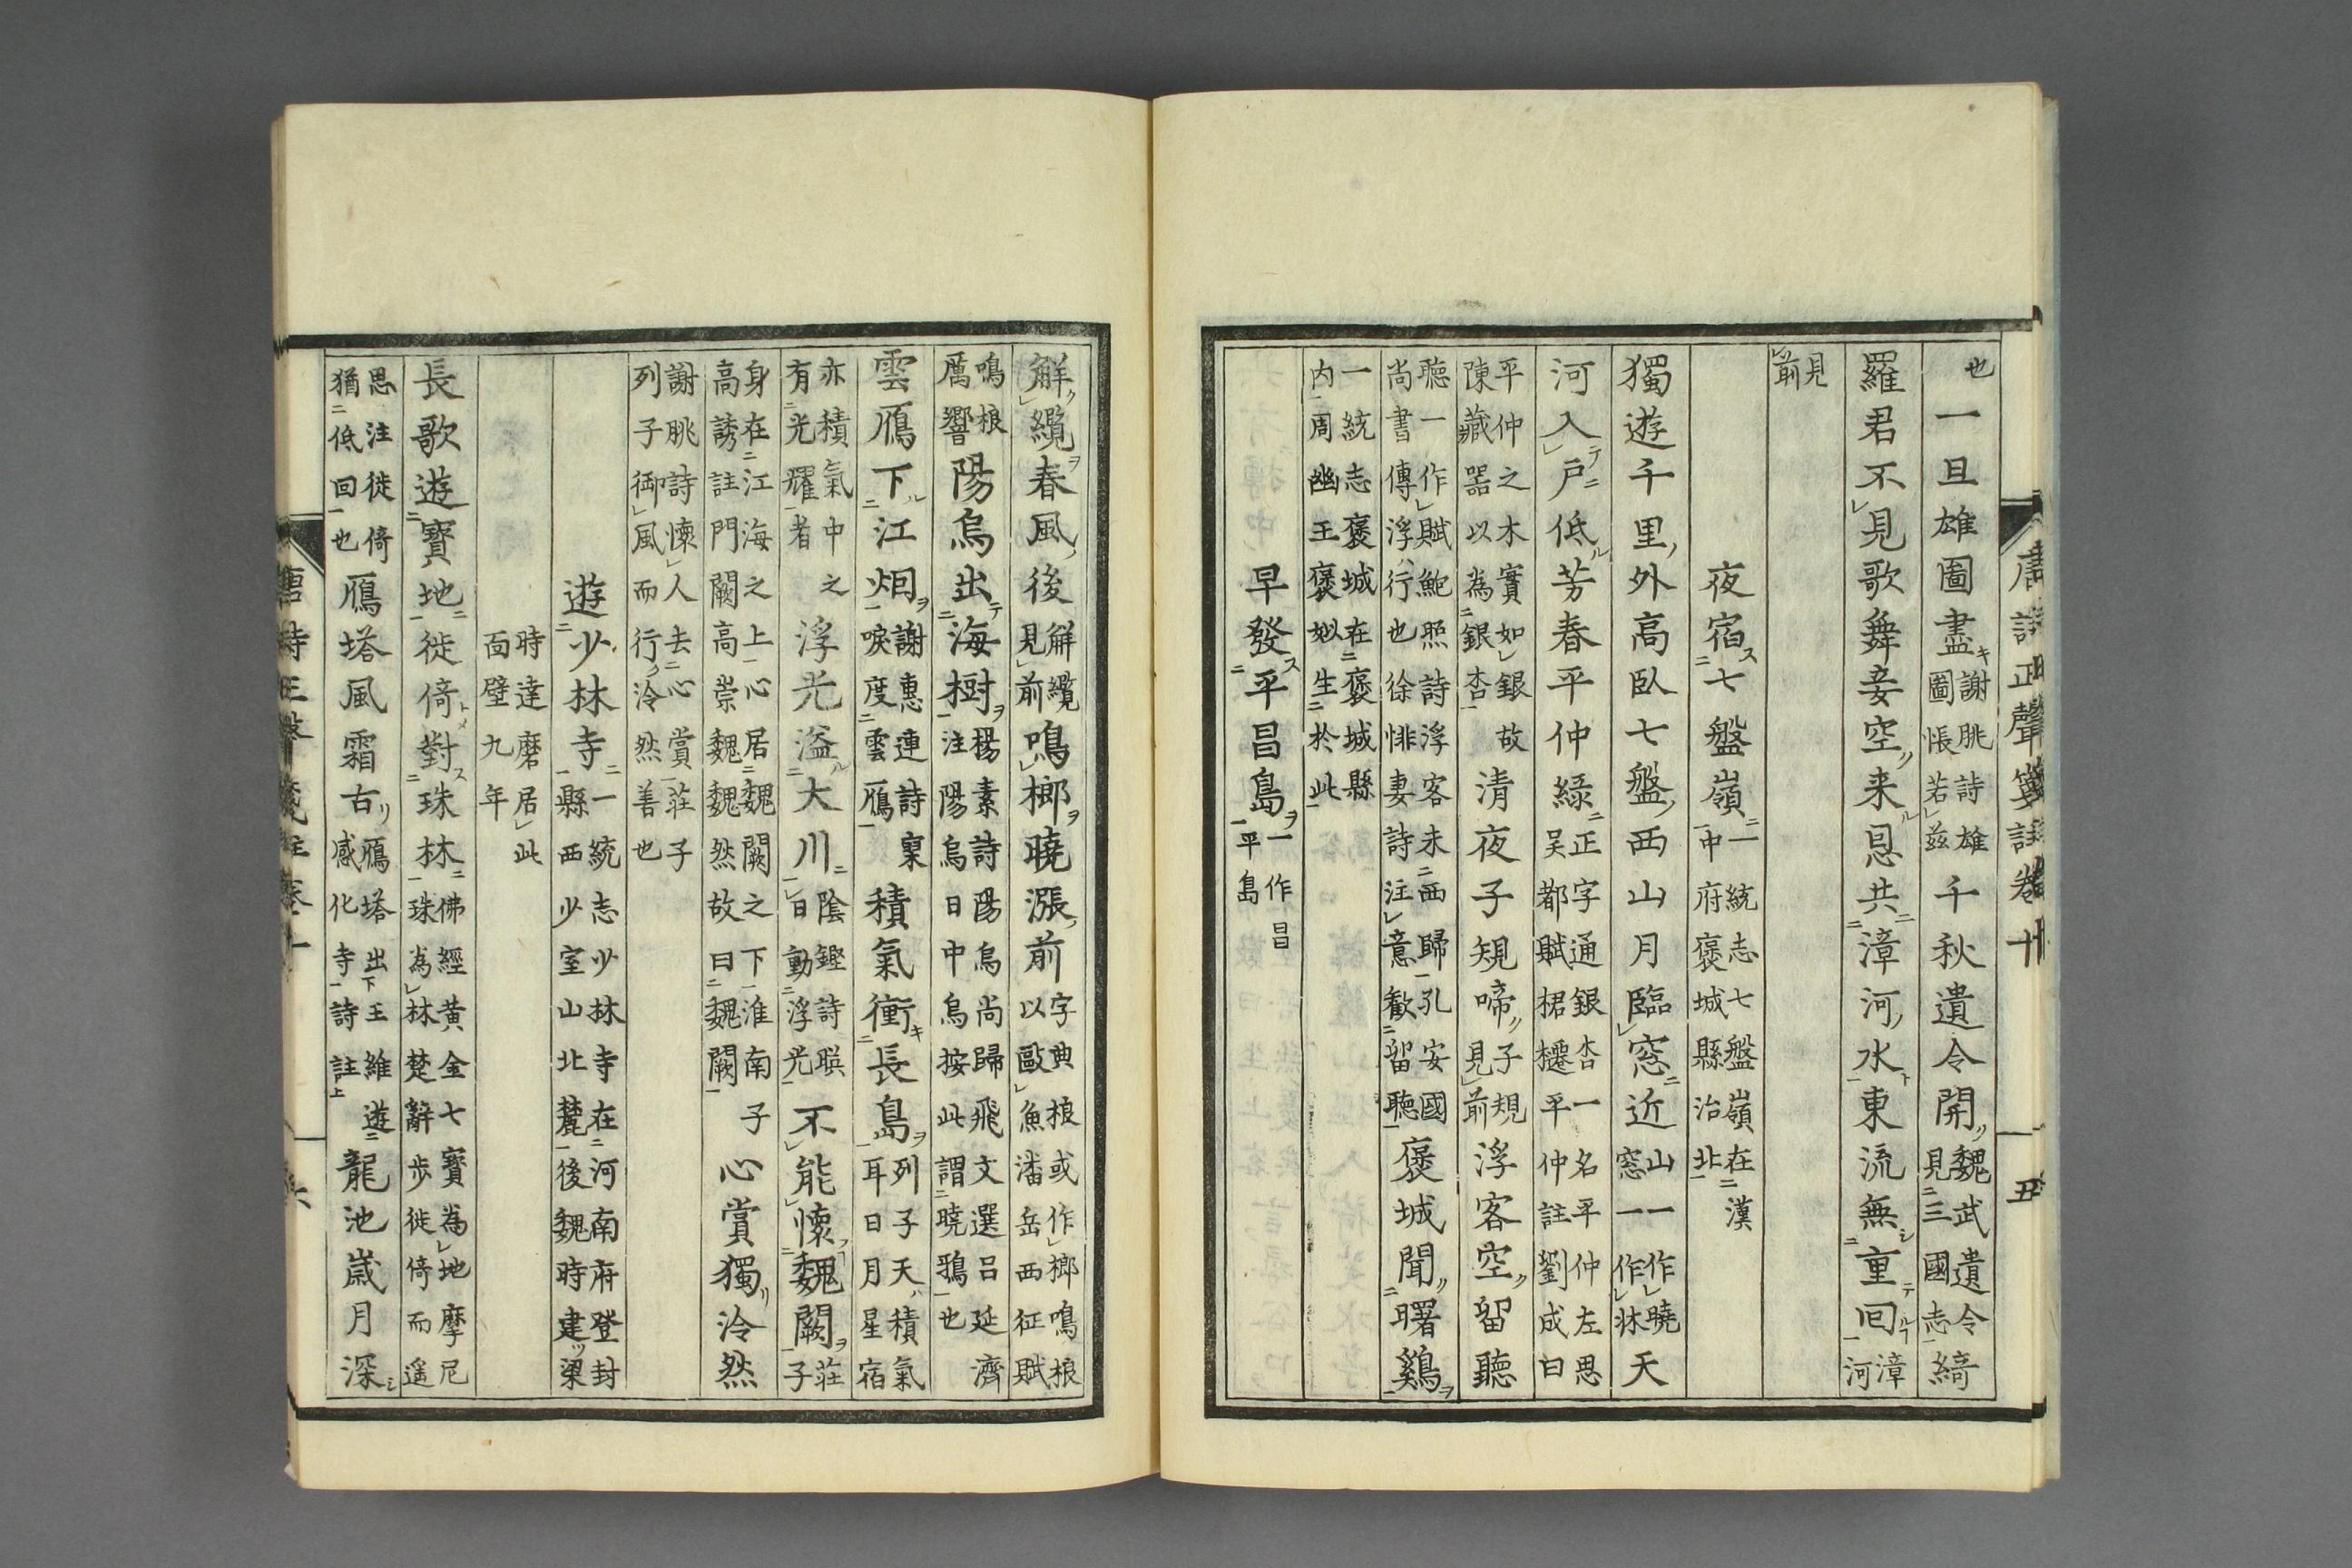 唐詩正聲箋註卷十 五
也一旦雄圖盡謝朓詩雄圖悵若茲千秋遺令開魏武遺令見三國志綺
羅君不見歌舞妾空来恩共漳河水東流無重回漳河
見前
夜宿七盤嶺一統志七盤嶺在漢中府褒城縣治北
獨遊千里外高臥七盤西山月臨窓近山一作曉窓一作牀天
河入戸低芳春平仲綠正字通銀杏一名平仲左思吳都賦桾櫏平仲註劉成曰
平仲之木實如銀故陳藏器以為銀杏清夜子規啼子規見前浮客空留聽
聽一作賦鮑照詩浮客未西歸孔安國尚書傳浮行也徐悱妻詩注意歡留聽褒城聞曙鷄
一統志褒城在褒城縣内周幽王褒姒生於此
早發平昌島一作昌平島
解纜春風後解纜見前鳴榔曉漲前字典桹或作榔鳴桹以敺魚潘岳西征賦
鳴桹厲響陽烏出海樹楊素詩陽烏尚歸飛文選呂延濟注陽烏日中烏按此謂曉鴉也
雲鴈下江烟謝惠連詩寡唳度雲鴈積氣衝長島列子天積氣耳日月星宿
亦積氣中之有光耀者浮光溢大川陰鏗詩映日動浮光不能懷魏闕莊子
身在江海之上心居魏闕之下淮南子高誘註門闕高崇魏魏然故曰魏闕心賞獨泠然
謝朓詩懷人去心賞莊子列子御風而行泠然善也
遊少林寺一統志少林寺在河南府登封縣西少室山北麓後魏時建梁
時達磨居此面壁九年
長歌遊寶地徙倚對珠林佛經黄金七寶為地摩尼珠為林楚辭步徙倚而遥
思注徙倚猶低回也鴈塔風霜古鴈塔出王維遊感化寺詩註龍池歲月深